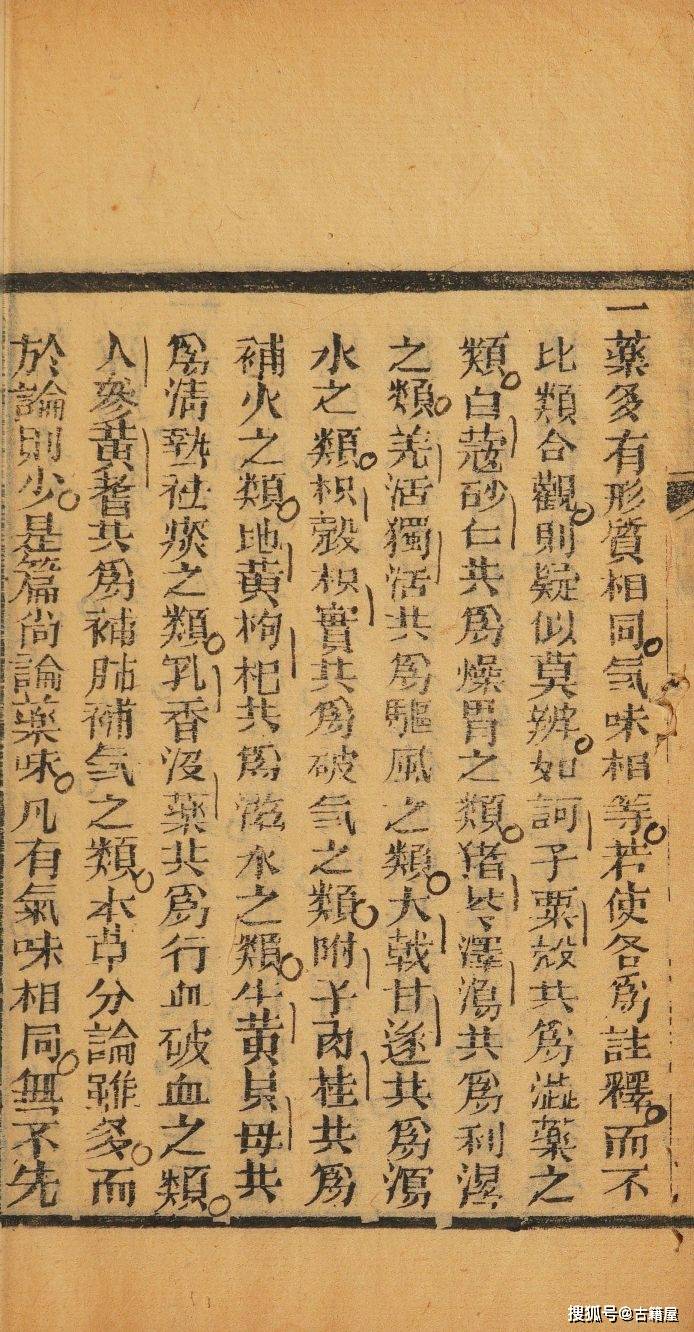 一藥多有形質相同氣味相等若使各爲註釋而不
比類合觀則疑似莫辨如訶子粟殼共爲澁藥之
類白蔻砂仁共爲燥胃之類猪苓澤瀉共爲利濕
之類羌活獨活共爲驅風之類大戟甘遂共爲瀉
水之類枳殼枳實共爲破氣之類附子肉桂共爲
補火之類地黃枸杞共爲滋水之類牛黃貝母共
爲清熱祛痰之類乳香沒藥共爲行血破血之類
人參黃耆共爲補肺補氣之類本草分論雖多而
於論則少是篇尚論藥味凡有氣味相同無不先
搜狐号@古籍屋